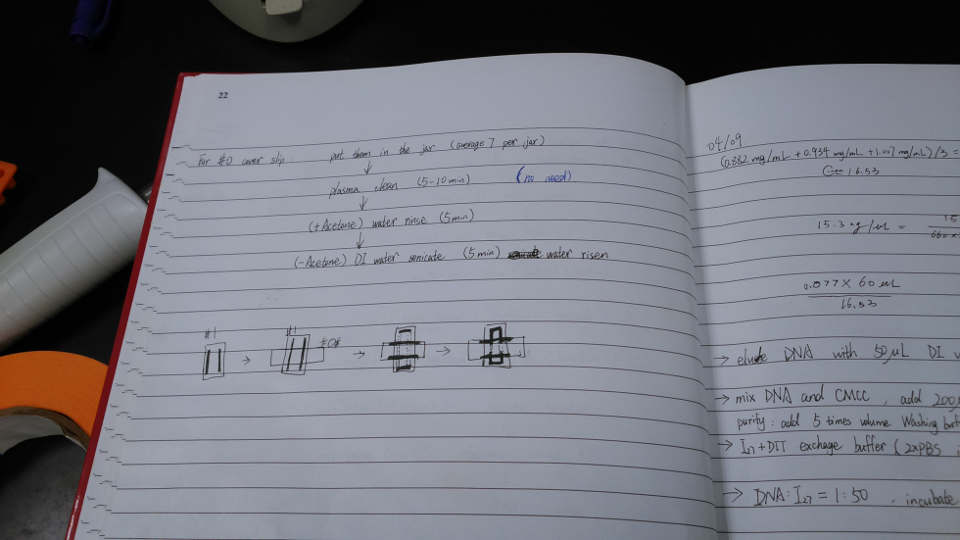 22
For #0 cover slip put them in the jar (average 7 per jar)
plasma clean (5-10 min) (no need)
(+Acetone) water rinse (5 min)
(-Acetone) DI water sonicate (5 min) water risen
#1 #1 #0#
04/09
(0.882 mg/mL + 0.934 mg/mL + 1.007 mg/mL)/3 =
16.53
15.3 ng/uL = 15
660 x
0.077 X 60 uL
16.53
→ elute DNA with 50 uL DI
→ mix DNA and CMCC, add 200
purity: add 5 times volume Washing buff
→ I27 + DTT exchage buffer (2xPBS
→ DNA: I27 = 1:50, incubate